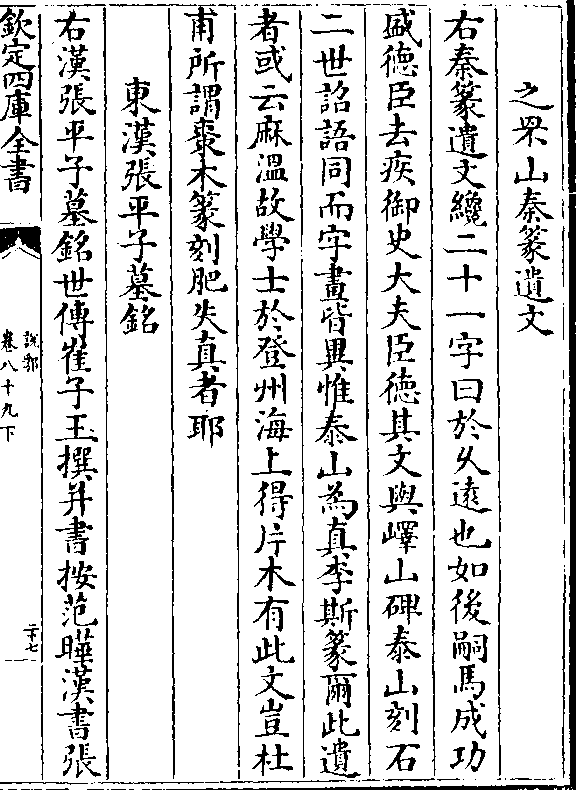 之罘山秦篆遺文
右秦篆遺文纔二十一字曰於久遠也如後嗣焉成功
盛徳臣去疾御史大夫臣徳其文與嶧山碑泰山刻石
二世詔語同而字畫皆異惟泰山為真李斯篆爾此遺
者或云麻溫故學士於登州海上得片木有此文豈杜
甫所謂棗木篆刻肥失真者耶
東漢張平子墓銘
右漢張平子墓銘世傳崔子玉撰并書按范曄漢書張
欽定四庫全書
說郛
卷八十九下
二十七